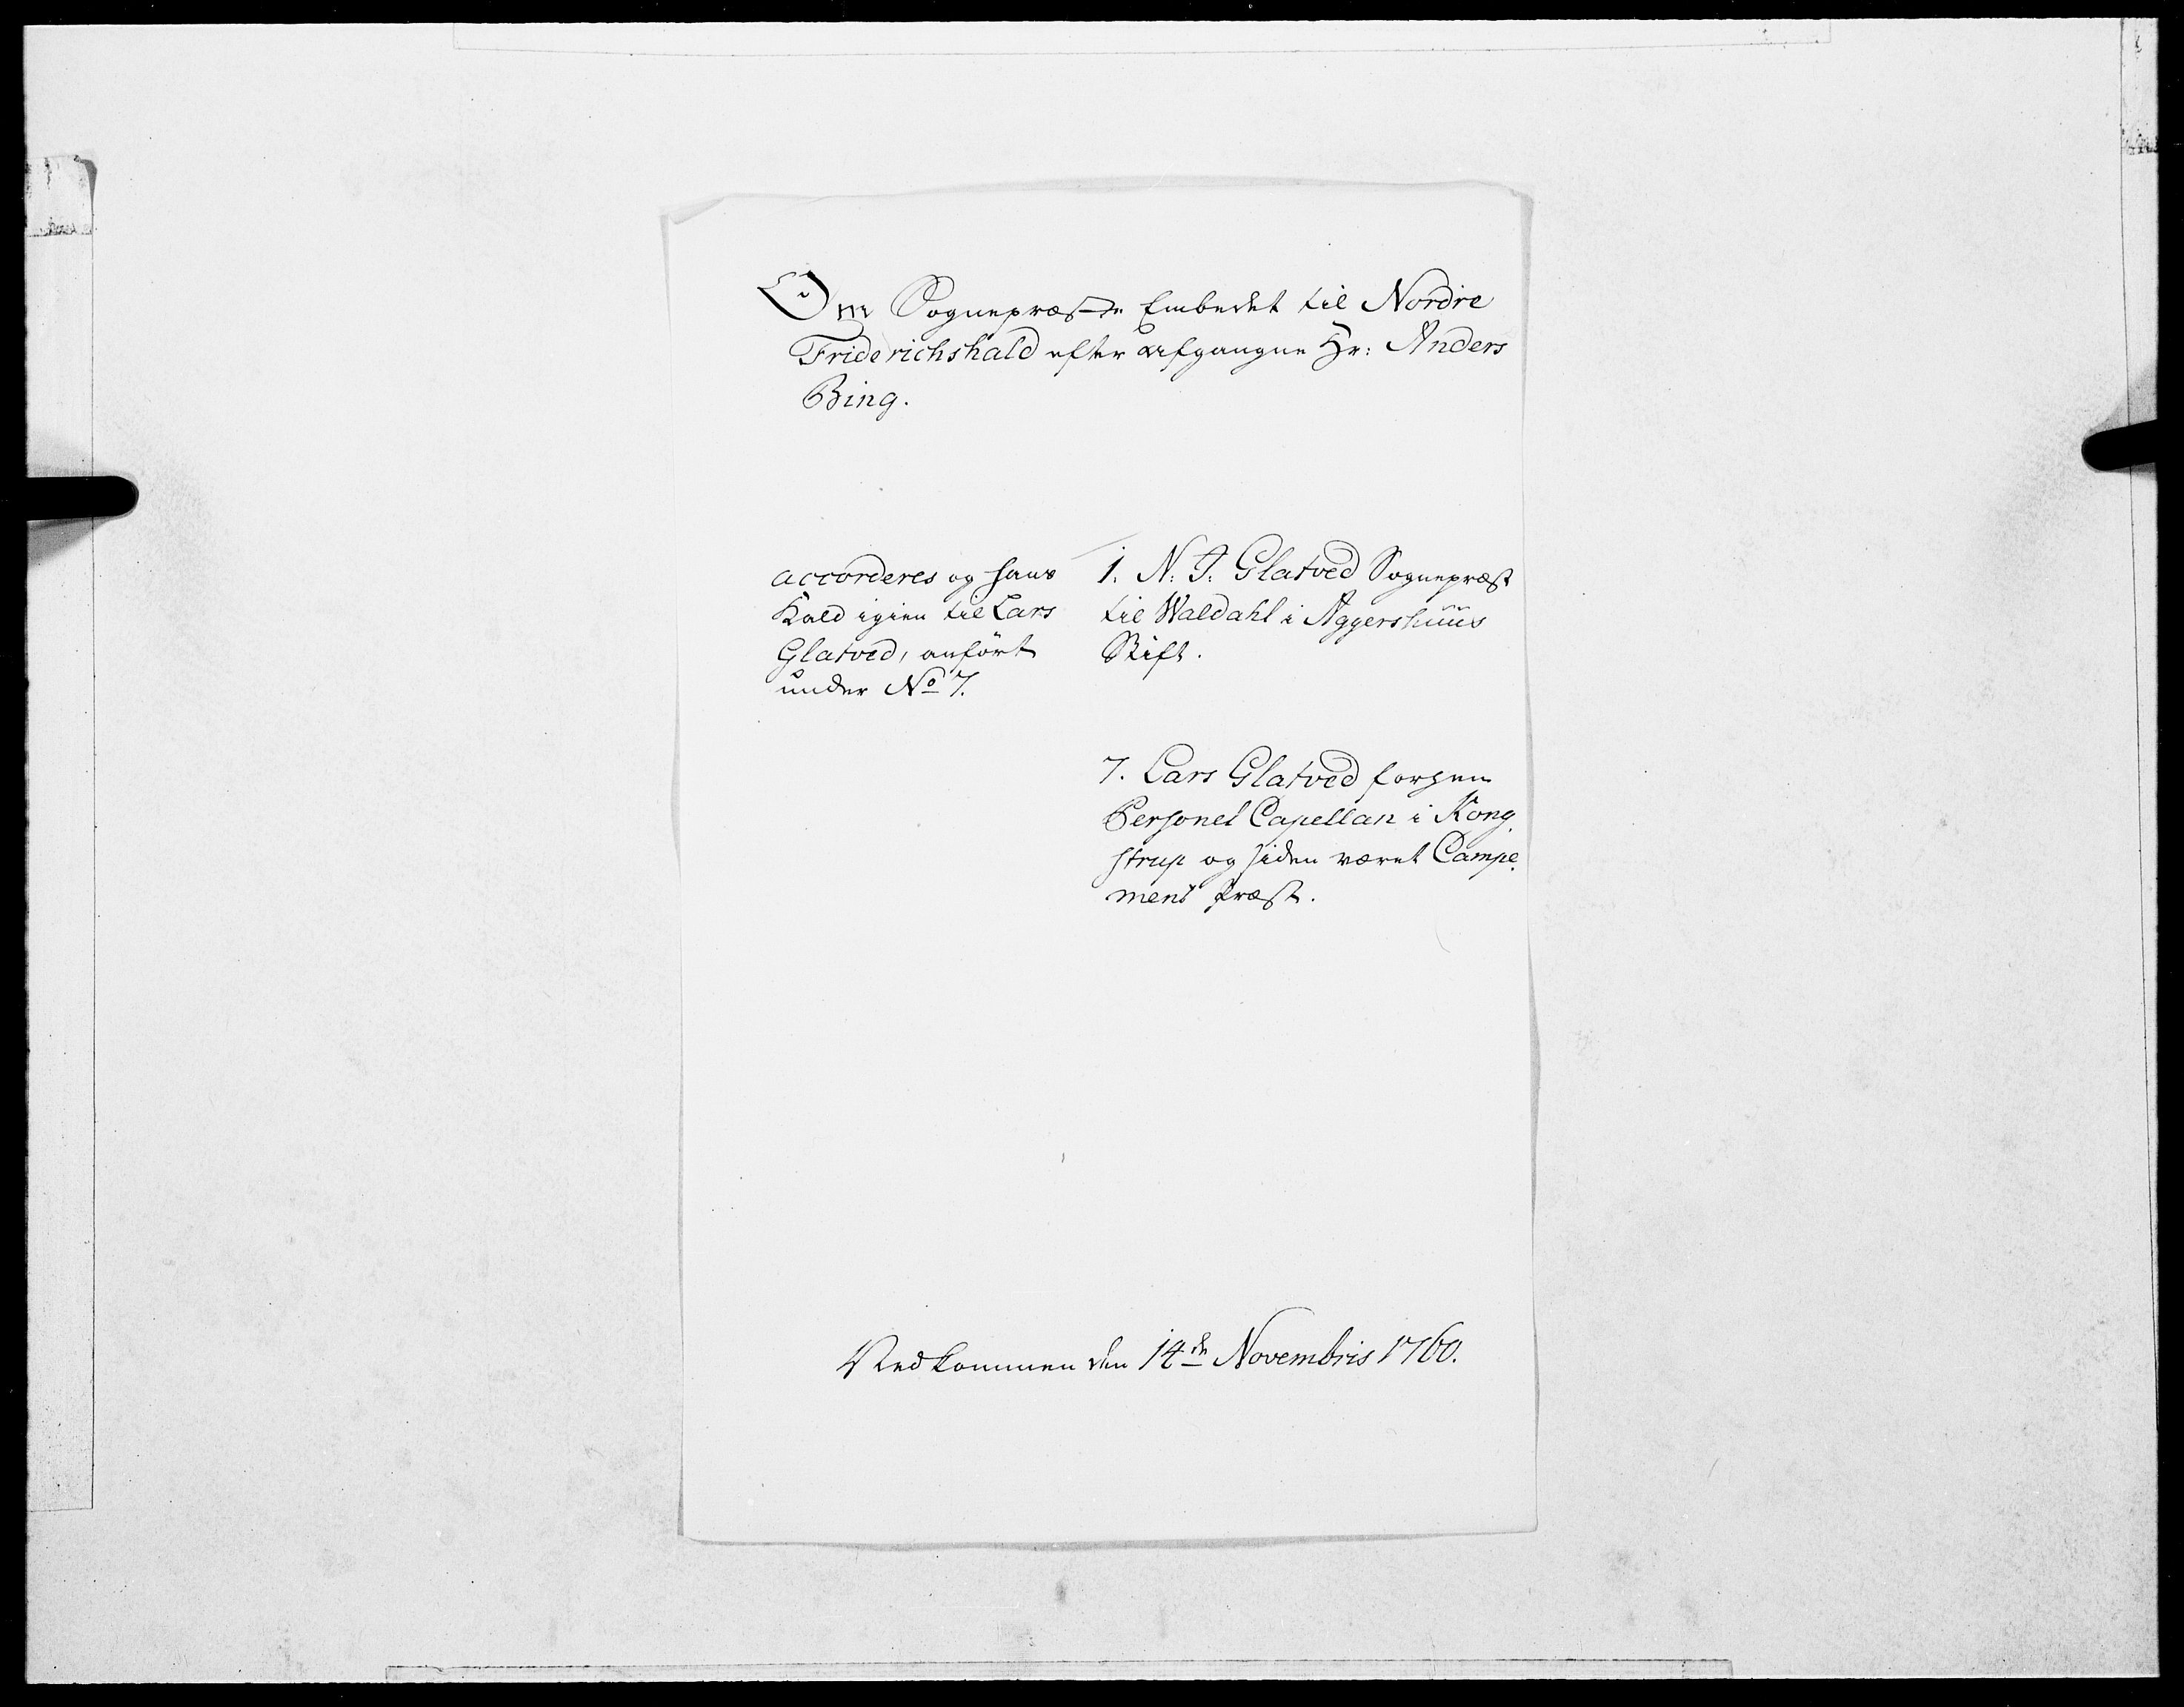 Om Sognepræste Embedet til Nordre
Friderichshald efter afgangne Hr: Anders
Bing.
accorderes og hans
Kald igien til Lars
Glatved, anført
under No 7.
1. N: J: Glatved Sognepræst
til Waldahl i Aggershuus
Stift.
7. Lars Glatved forhen
Personel Capellan i Kong
strup og siden været Campe
ment Præst.
Nedkommen den 14de Novembris 1760.